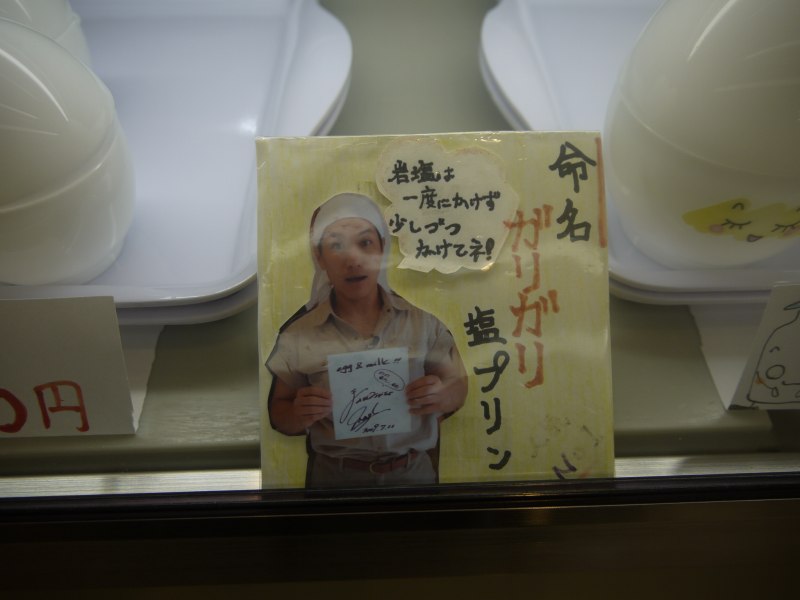 命名
ガリガリ
塩プリン
岩塩は
一度にかけず
少しづつ
かけてネ!
egg & milk !!!
0円